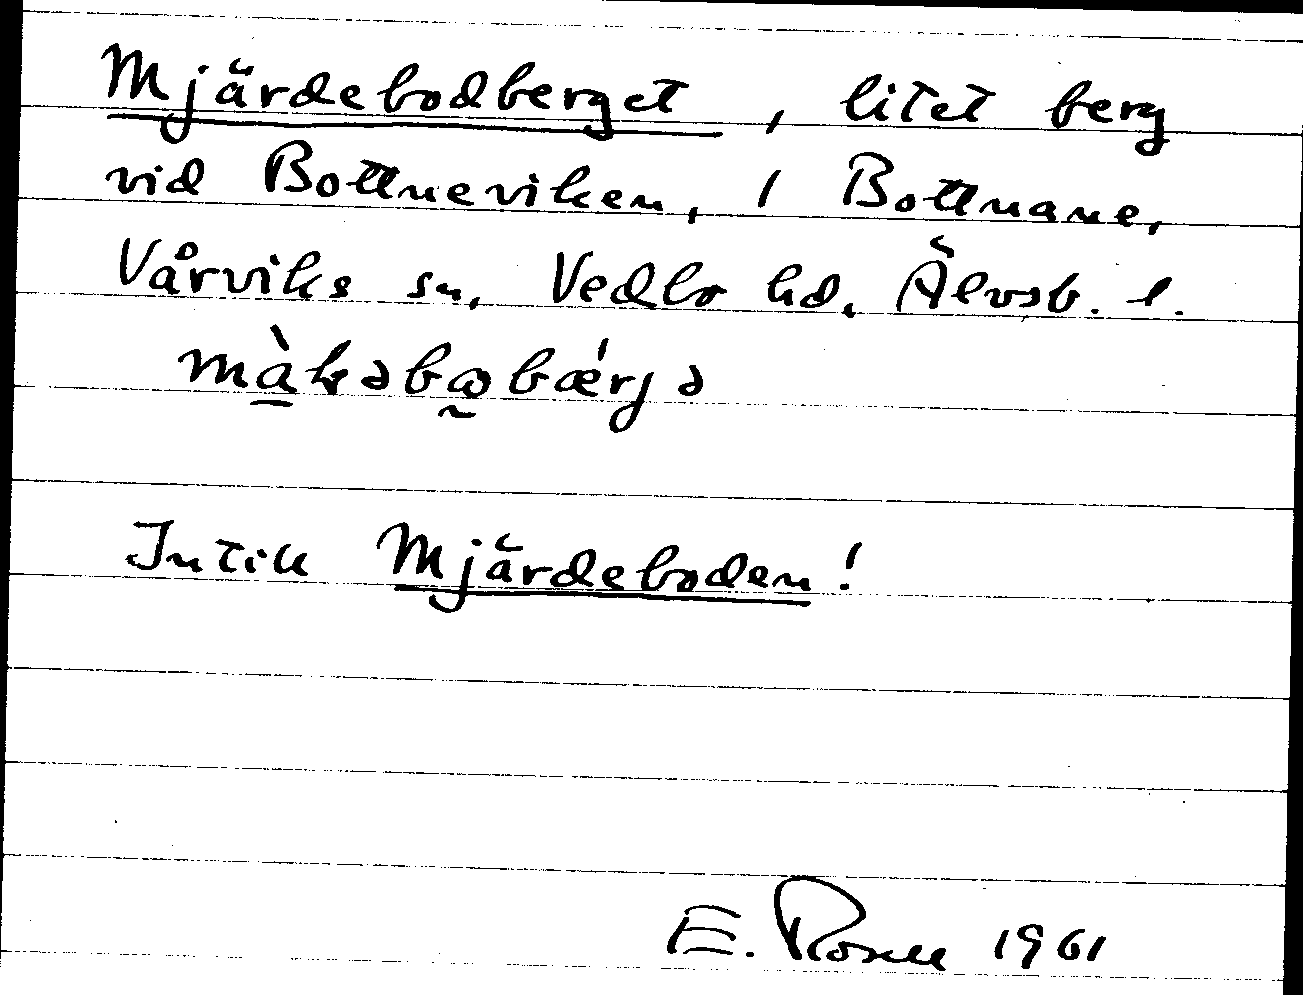 Mjärdebodberget, litet berg
vid Bottneviken, 1 Bottnane,
Vårviks sn, Vedbo hd, Älvsb. l.
Intill Mjärdeboden!
E. Rosell 1961